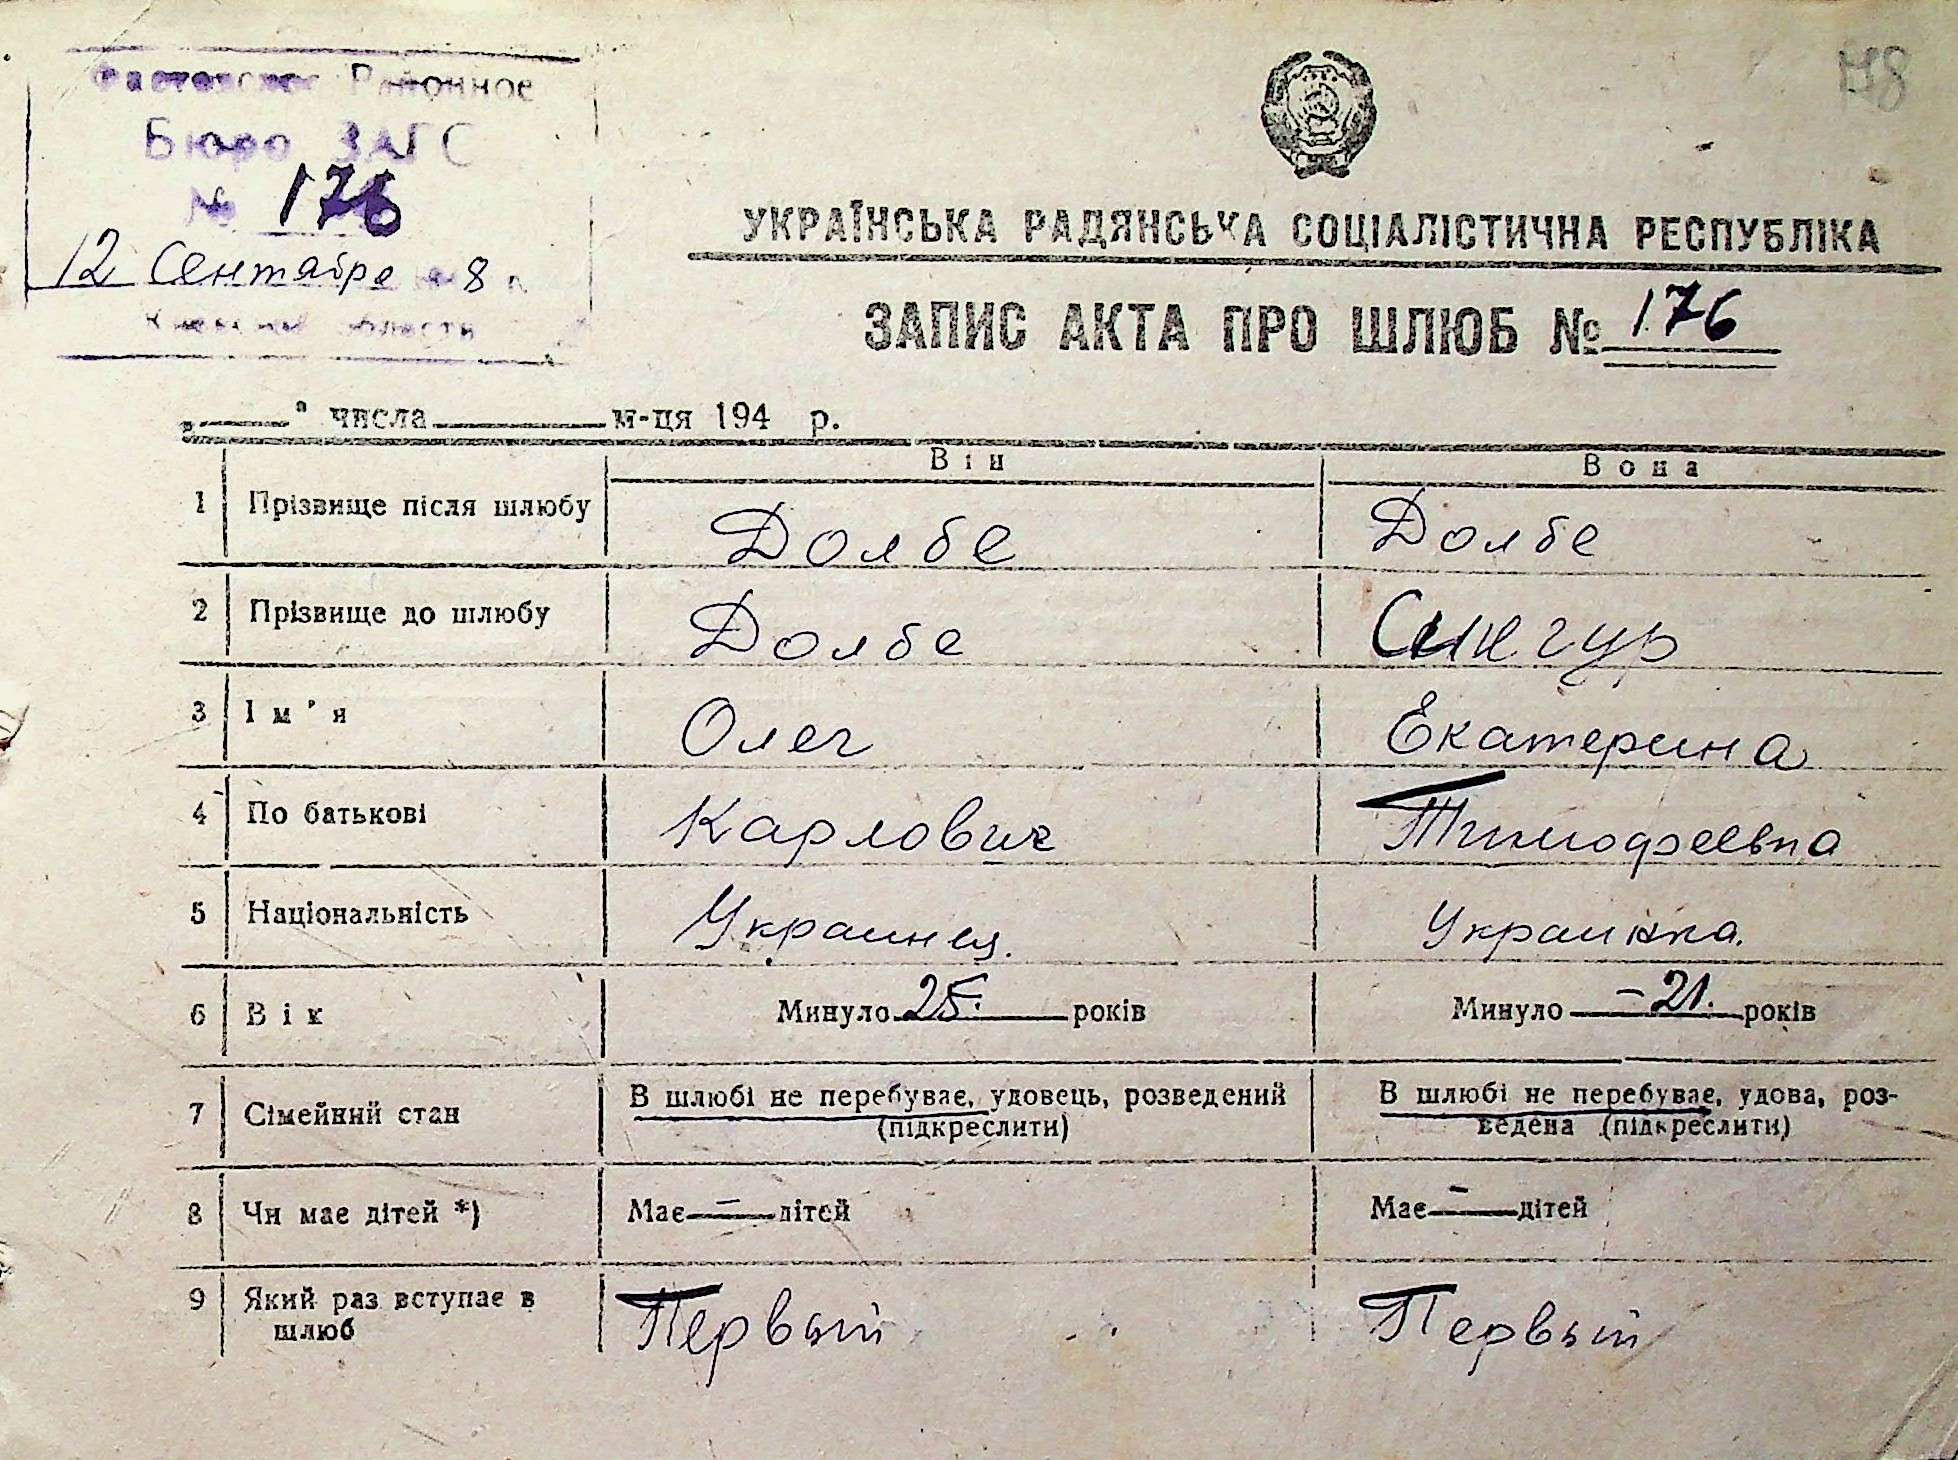 Фастовское Районное
Бюро ЗАГС
№ 176
12 Сентябре 8 г.
Киевской области
УКРАЇНСЬКА РАДЯНСЬКА СОЦІАЛІСТИЧНА РЕСПУБЛІКА
ЗАПИС АКТА ПРО ШЛЮБ № 176
числа м-ця 194 р.
Він Вона
1 Прізвище після шлюбу Долбе Долбе
2 Прізвище до шлюбу Долбе Сингур
3 Ім'я Олег Екатерина
4 По батькові Карлович Тимофеевна
5 Національність Украинец. Украинка.
6 Вік Минуло 25. років Минуло - 21. років
7 Сімейний стан В шлюбі не перебуває, удовець, розведений (підкреслити) В шлюбі не перебуває, удова, роз-
ведена (підкреслити)
8 Чи має дітей *) Має – дітей Має – дітей
9 Який раз вступає в шлюб Первый Первый